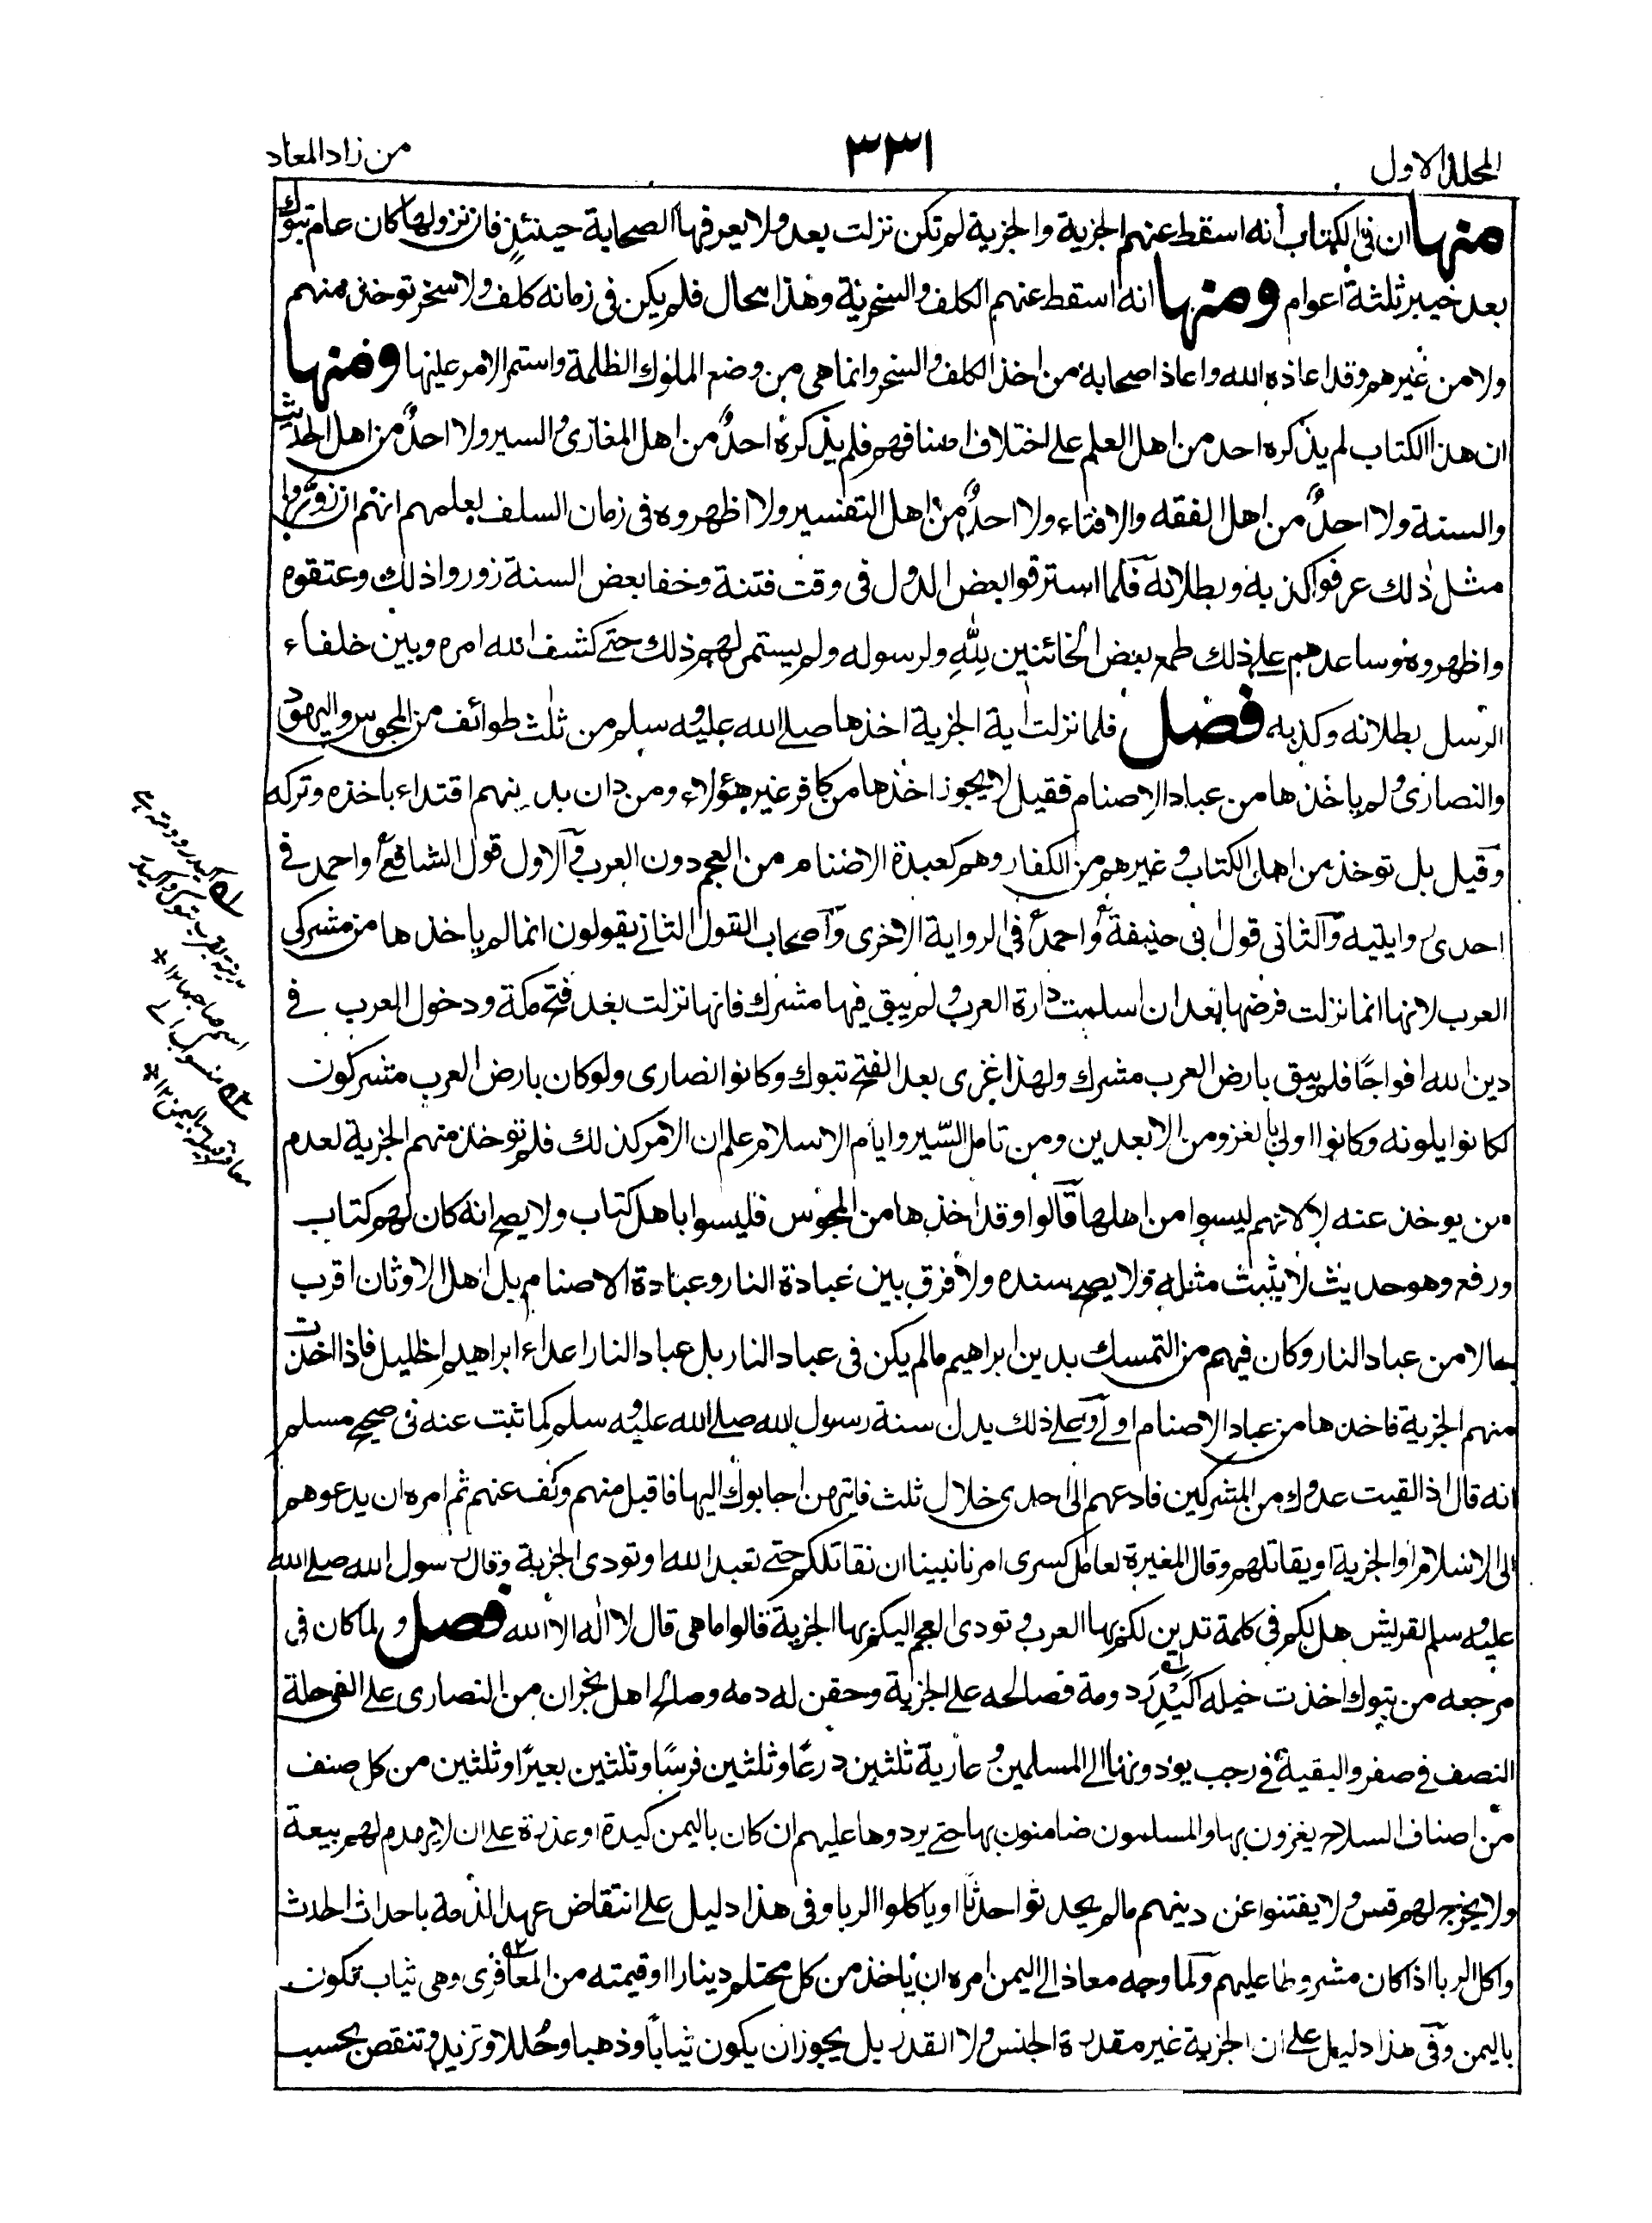 المجلد الاول
٣٣١
من زاد المعاد
منها ان فى الكتاب انه اسقط عنهم الجزية والجزية لم تكن نزلت بعد ولا يعرفها الصحابة حينئذٍ فان نزولها كان عام تبوك
بعد خيبر ثلثة اعوام ومنها انه اسقط عنهم الكلف والسخرية وهذا محال فلم يكن فى زمانه كلف ولا سخر توخذ منهم
ولا من غيرهم وقد اعاذه الله واعاذ اصحابه من اخذ الكلف والسخر وانما هى من وضع الملوك الظلمة واستمر الامر عليها ومنها
ان هذا الكتاب لم يذكره احد من اهل العلم على اختلاف اصنافهم فلم يذكره احدٌ من اهل المغازى والسير ولا احدٌ من اهل الحديث
والسنة ولا احدٌ من اهل الفقه والافتاء ولا احدٌ من اهل التفسير ولا اظهروه فى زمان السلف لعلمهم انهم ان زوّروا
مثل ذلك عرفوا كذبه وبطلانه فلما استرقوا بعض الدول فى وقت فتنة وخفا بعض السنة زوروا ذلك وعتقوه
واظهروه وساعدهم على ذلك طمع بعض الخائنين لِلّٰهِ ولرسوله ولم يستمر لهم ذلك حتے كشف الله امره وبين خلفاء
الرسل بطلانه وكذبه فصل فلما نزلت اٰية الجزية اخذها صلے الله عليه وسلم من ثلٰث طوائف من المجوس واليهود
والنصارى ولم ياخذها من عباد الاصنام فقيل لا يجوز اخذها من كافر غير هؤلاء ومن دان بدينهم اقتداء باخذه وتركه
وقيل بل توخذ من اهل الكتاب وغيرهم من الكفار وهم كعبدة الاصنام من العجم دون العرب والاول قول الشافعي واحمد فے
احدى روايتيه والثانى قول ابى حنيفة واحمد فى الرواية الاخرى واصحاب القول الثانے يقولون انما لم ياخذها من مشركى
العرب لانها انما نزلت فرضها بعد ان اسلمت دارة العرب ولم يبق فيها مشرك فانها نزلت بعد فتح مكة ودخول العرب فے
دين الله افواجًا فلم يبق بارض العرب مشرك ولهذا غزى بعد الفتح تبوك وكانوا نصارى ولو كان بارض العرب مشركون
لكانوا يلونه وكانوا اولى بالغزو من الابعدين ومن تامل السّير وايام الاسلام علم ان الامر كذلك فلم توخذ منهم الجزية لعدم
من يوخذ عنه لا لانهم ليسوا من اهلها قالوا وقد اخذها من المجوس فليسوا باهل كتاب ولا يصح انه كان لهم كتاب
ورفع وهو حديث لا يثبت مثله ولا يصح سنده ولا فرق بين عبادة النار وعبادة الاصنام بل اهل الاوثان اقرب
حالا من عباد النار وكان فيهم من التمسك بدين ابراهيم ما لم يكن فى عباد النار بل عباد النار اعداء ابراهيم الخليل فاذا اخذت
منهم الجزية فاخذها من عباد الاصنام اولے وعلے ذلك يدل سنة رسول الله صلے الله عليه وسلم كما ثبت عنه فى صحيح مسلم
انه قال اذا لقيت عدوك من المشركين فادعهم الى احدى خلال ثلث فايتهن اجابوك اليها فاقبل منهم وكف عنهم ثم امره ان يدعوهم
الى الاسلام او الجزية او يقاتلهم وقال المغيرة لعامل كسرى امرنا نبينا ان نقاتلكم حتے تعبدوا الله او تودى الجزية وقال رسول الله صلے الله
عليه وسلم لقريش هل لكم فى كلمة تدين لكم بها العرب وتودى العجم اليكم بها الجزية قالوا ما هى قال لا اله الا الله فصل ولما كان فى
مرجعه من تبوك اخذت خيله اُكَيْدِرَ دومة فصالحه على الجزية وحقن له دمه وصالح اهل نجران من النصارى على الفى حلة
النصف فے صفر والبقية فے رجب يودونها الى المسلمين وعارية ثلثين درعًا وثلثين فرسًا وثلثين بعيرًا وثلثين من كل صنف
من اصناف السلاح يغزون بها والمسلمون ضامنون بها حتے يردوها عليهم ان كان باليمن كيدة او غدرة على ان لا يهدم لهم بيعة
ولا يخرج لهم قس ولا يفتنوا عن دينهم ما لم يحدثوا حدثا او ياكلوا الربا وفى هذا دليل على انتقاض عهد الذمة باحداث الحدث
واكل الربا اذا كان مشروطا عليهم ولما وجه معاذ الے اليمن امره ان ياخذ من كل محتلم دينارا او قيمته من المعافرى وهى ثياب تكون
باليمن وفى هذا دليل على ان الجزية غير مقدرة الجنس ولا القدر بل يجوز ان يكون ثيابًا وذهبا وحُللا وتزيد وتنقص بحسب